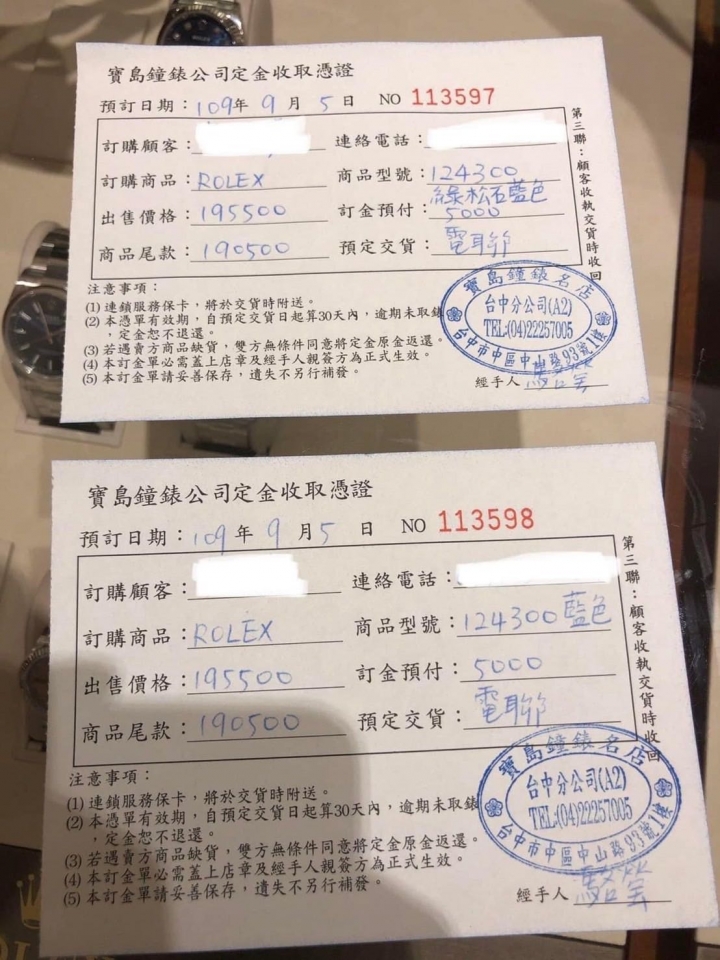 寶島鐘錶公司定金收取憑證
預訂日期：109年 9 月 5 日 NO 113597
訂購顧客： 連絡電話：
訂購商品：ROLEX 商品型號：124300
綠松石藍色
出售價格：195500 訂金預付：5000
商品尾款：190500 預定交貨：電聯
第三聯：顧客收執交貨時收回
注意事項：
(1) 連鎖服務保卡，將於交貨時附送。
(2) 本憑單有效期，自預定交貨日起算30天內，逾期未取錶
，定金恕不退還。
(3) 若遇賣方商品缺貨，雙方無條件同意將定金原金返還。
(4) 本訂金單必需蓋上店章及經手人親簽方為正式生效。
(5) 本訂金單請妥善保存，遺失不另行補發。
寶島鐘錶名店
台中分公司(A2)
TEL:(04)22257005
台中市中區中山路93號1樓
經手人
寶島鐘錶公司定金收取憑證
預訂日期：109 年 9 月 5 日 NO 113598
訂購顧客： 連絡電話：
訂購商品：ROLEX 商品型號：124300藍色
出售價格：195500 訂金預付：5000
商品尾款：190500 預定交貨：電聯
第三聯：顧客收執交貨時收回
注意事項：
(1) 連鎖服務保卡，將於交貨時附送。
(2) 本憑單有效期，自預定交貨日起算30天內，逾期未取錶
，定金恕不退還。
(3) 若遇賣方商品缺貨，雙方無條件同意將定金原金返還。
(4) 本訂金單必需蓋上店章及經手人親簽方為正式生效。
(5) 本訂金單請妥善保存，遺失不另行補發。
寶島鐘錶名店
台中分公司(A2)
TEL:(04)22257005
台中市中區中山路93號1樓
經手人